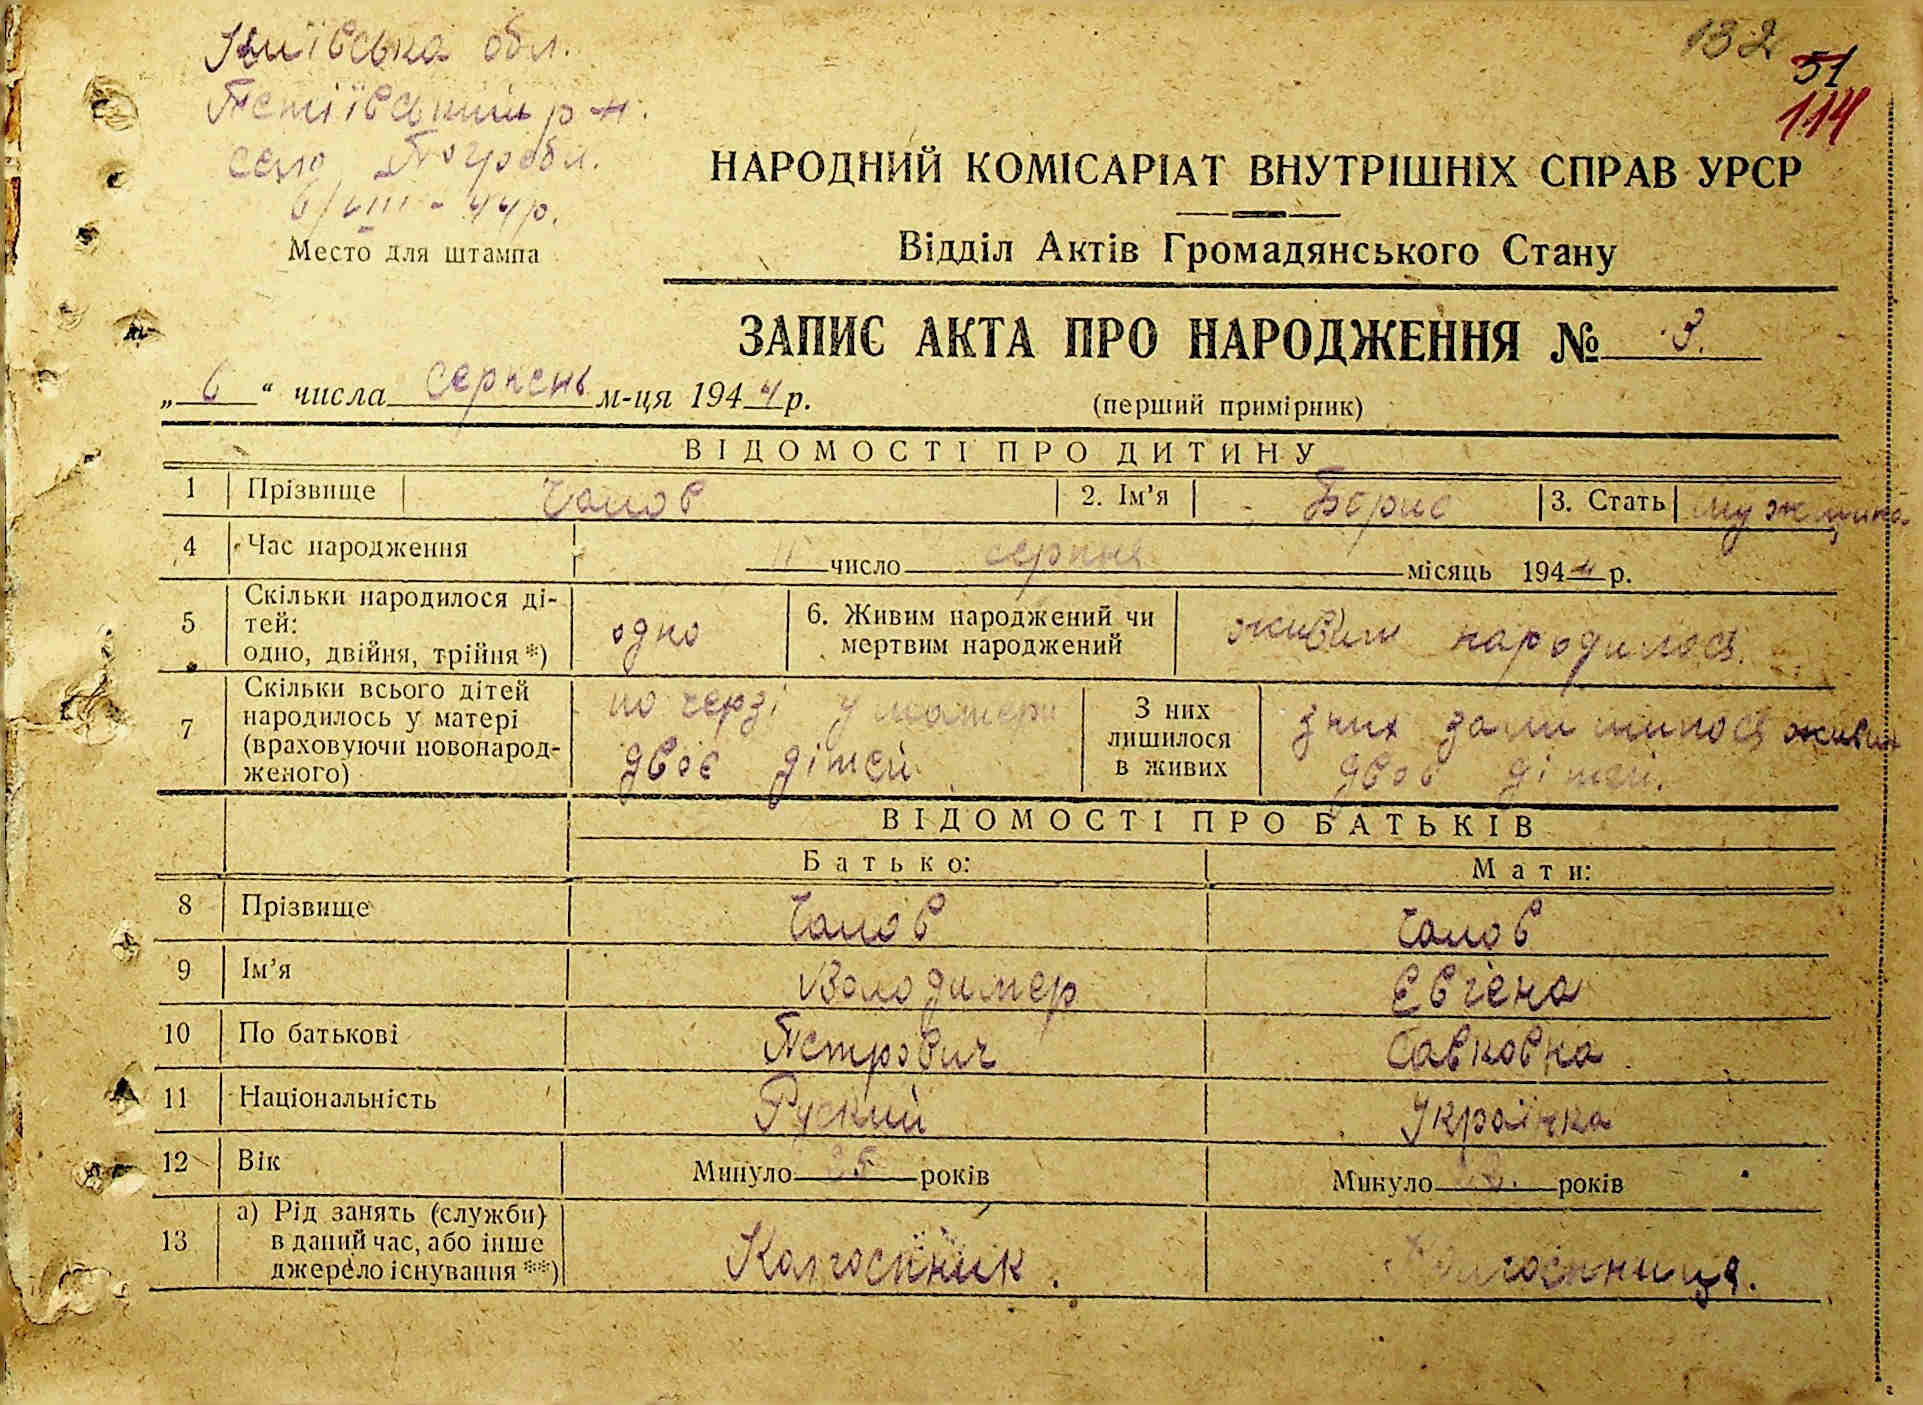 Київська обл.
Тетіївський р-н.
село Погребл.
6/VIII - 44р.
Место для штампа
132
51
114
НАРОДНИЙ КОМІСАРІАТ ВНУТРІШНІХ СПРАВ УРСР
Відділ Актів Громадянського Стану
ЗАПИС АКТА ПРО НАРОДЖЕННЯ № 3.
„ 6 “ числа серпень м-ця 1944 р.
(перший примірник)
ВІДОМОСТІ ПРО ДИТИНУ
1 Прізвище Чалов 2. Ім’я Борис 3. Стать
4 Час народження число серпня місяць 1944 р.
5 Скільки народилося ді-
тей:
одно, двійня, трійня*) одно 6. Живим народжений чи
мертвим народжений живим народилося.
7 Скільки всього дітей
народилось у матері
(враховуючи новонарод-
женого) по черзі у матери
двоє дітей. З них
лишилося
в живих з них
двоє дітей.
ВІДОМОСТІ ПРО БАТЬКІВ
Батько: Мати:
8 Прізвище Чалов Чалов
9 Ім’я Володимер Евгена
10 По батькові Петрович Савковна
11 Національність Руский Українка
12 Вік Минуло 25 років Минуло років
13 а) Рід занять (служби)
в даний час, або інше
джерело існування**) Колгоспник. Колгоспниця.